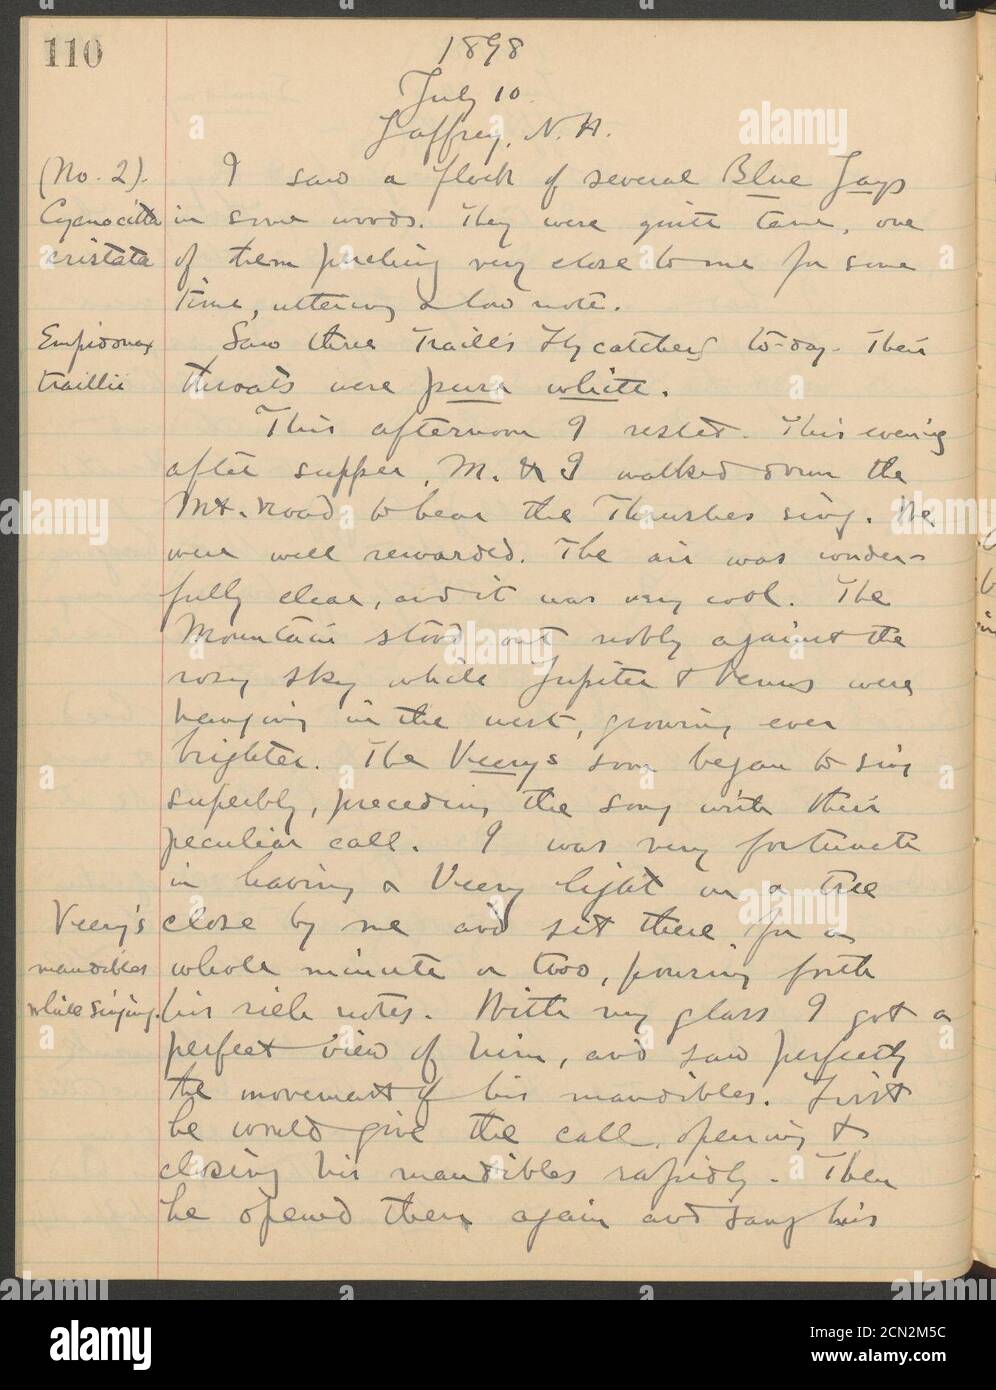 110
1898
July 10.
Jaffrey, N.H.
(No. 2). I saw a flock of several Blue Jays
Cyanocitta in some woods. They were quite tame, one
cristata of them perching very close to me for some
time, uttering a low note.
Empidonax Saw three Traill's Flycatchers to-day. Their
traillii throats were pure white.
This afternoon I rested. This evening
after supper, M. & I walked down the
Mt. Road to hear the Thrushes sing. We
were well rewarded. The air was wonder-
fully clear, and it was very cool. The
Mountain stood out nobly against the
rosy sky while Jupiter & Venus were
hanging in the west, growing ever
brighter. The Veerys soon began to sing
superbly, preceding the song with their
peculiar call. I was very fortunate
in having a Veery light on a tree
Veery's close by me and sit there for a
mandibles whole minute or two, pouring forth
while singing. his rich notes. With my glass I got a
perfect view of him, and saw perfectly
the movement of his mandibles. First
he would give the call, opening &
closing his mandibles rapidly. Then
he opened them again and sang his
alamy
Image ID: 2CN2M5C
www.alamy.com